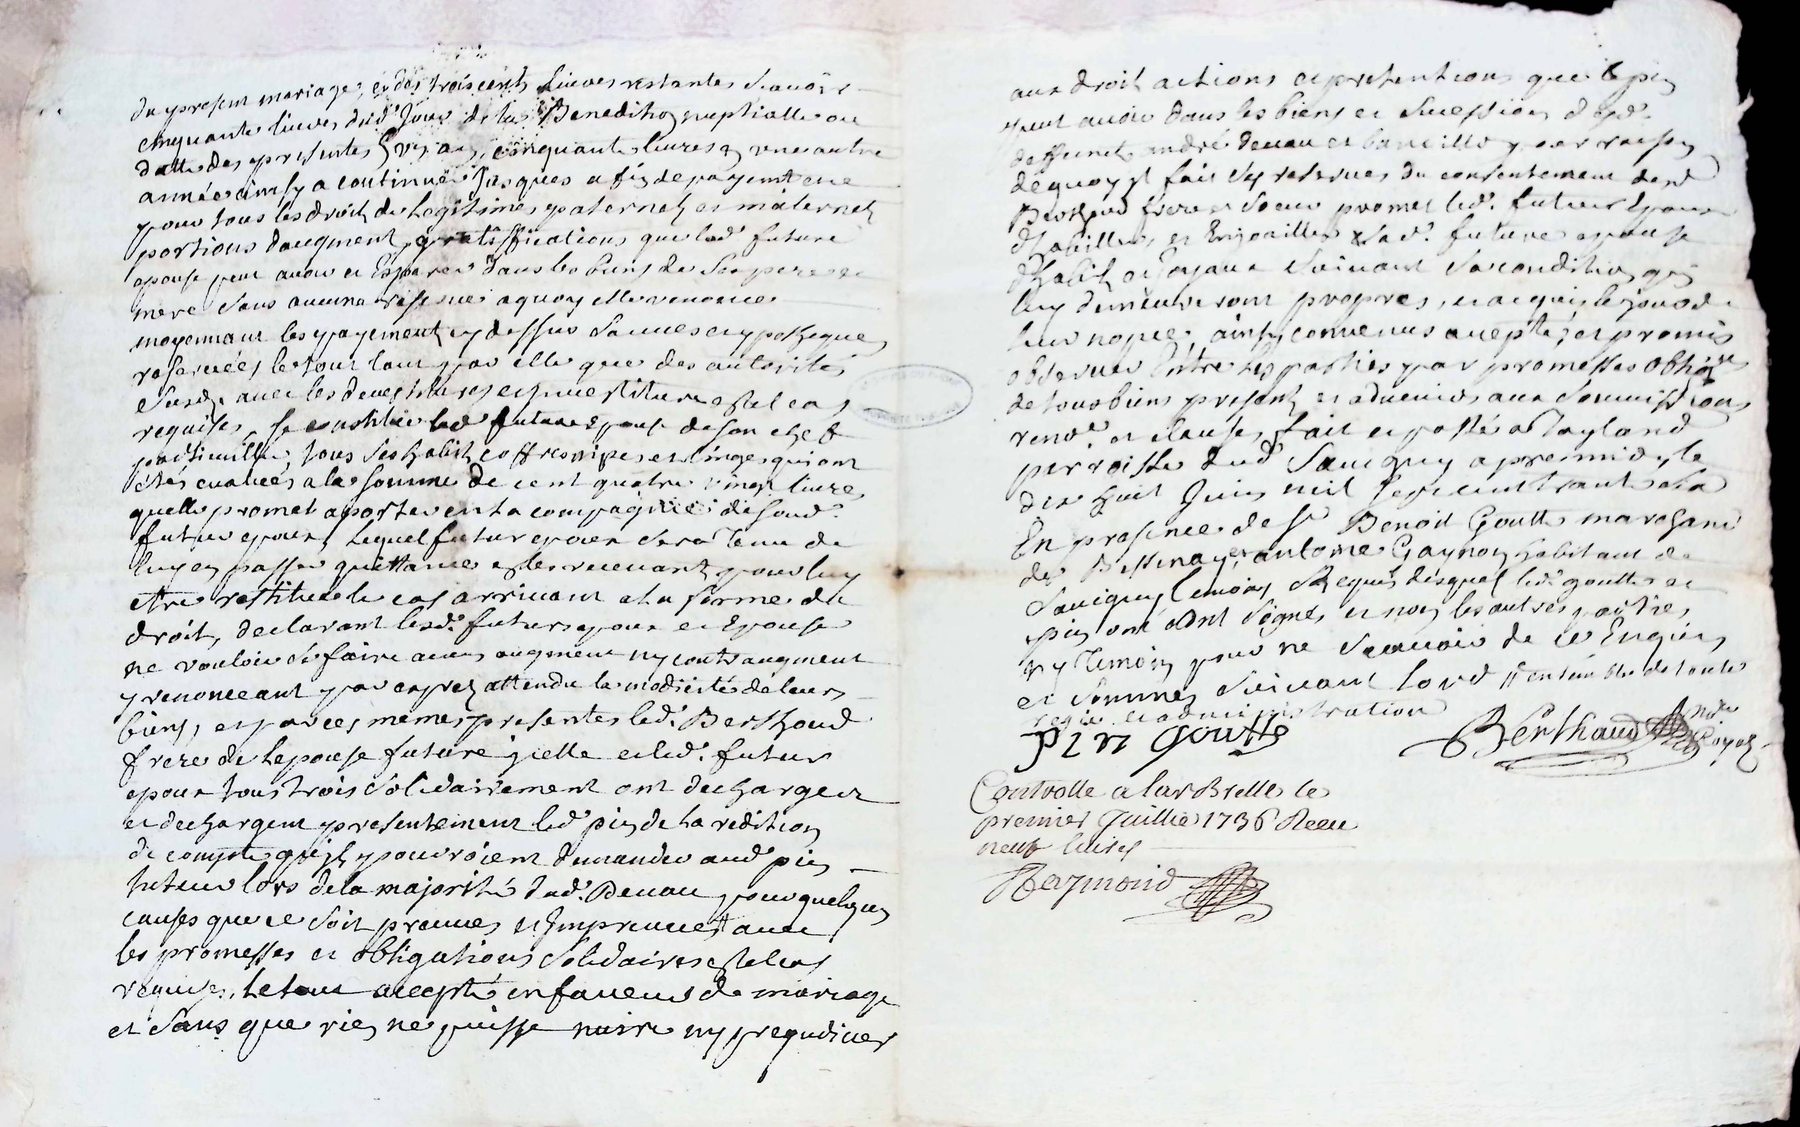 du present mariage, et des trois cents livres restantes scavoir
cinquante livres dud. Jour de la Benediction nuptialle ou
datte des presentes en un an, cinquante livres en une autre
année ainsy a continuer Jusques a fin de payemt et ce
pour tous les droits de legitimes paternels et maternels
portions daugment, gratiffications que lad. future
epouse peut avoir et Esperer dans les biens de ses pere et
mere sans aucune reserve a quoy elle renonce
moyennant les payements cy dessus sauves et ypotheques
reservées, le tout tant par elle que des autorités
Susd. avec les devestitures et investitures sy le cas
requises, se constitue lad. future Epouse de son chef
particullier, tous ses habits, coffre nipes et linges qui ont
étés evalués a la somme de cent quatre vingt livres
quelle promet aporter en la compagnie desond.
futur epoux, lequel futur epoux sera tenu de
luy en passer quittance et les recevant pour luy
etre restitué le cas arrivant a la forme du
droit, declarant lesd. futurs epoux et Epouse
ne vouloir se faire aucun augment ny contraugment
y renonceant par exprés attendu la modicité de leurs
biens, et par ces memes presentes led. Berthaud
frere de lepouse future ycelle et led. futur
epoux tous trois solidairement ont dechargez
et dechargent presentement led. pin de la redition
de compte qu'ils pouvroient demander aud. pin
tuteur lors de la majorité dud. Devau pour quelques
causes que ce soit preuves et Impreuves avec
les promesses et obligations solidaires sy le cas
requises, le tout accepté en faveur de mariage
et sans que rien ne puisse nuire ny prejudicier
aux droit actions et pretentions que le pin
peut avoir dans les biens et succession dud.
deffunct andré devau et bancillon par raison
de quoy yl fait ses reserves du consentement desd.
Berthaud frere et soeur promet led. futur Epoux
d'habiller et Enjoailler sad. future epouse
d'habits et Joyaux suivant sa condition qui
luy demeureront propres, et acquis le jour de
leur nopces, ainsy convenus accepté, et promis
observer Entre les parties par promesses obligons
de tous biens presents et advenirs aux soumissions
renon. et clauses, fait et passé a Tayland
perroisse dud. Savigny apres midy le
dix huit Juin mil sept cent trante six
En presence de sr Benoit Goutte marchand
de Bessenay, et antoine Gaynon habitant de
Savigny temoins Requis desquels led. goutte et
pin ont signé, et non les autres parties
ny temoin pour ne scavoir de ce Enquis
et sommes suivant lord.
regie et administration
Pin Goutte
Berthaud
Controlle a Larbrelle le
premier Juillet 1736 Receu
neuf livres
Raymond